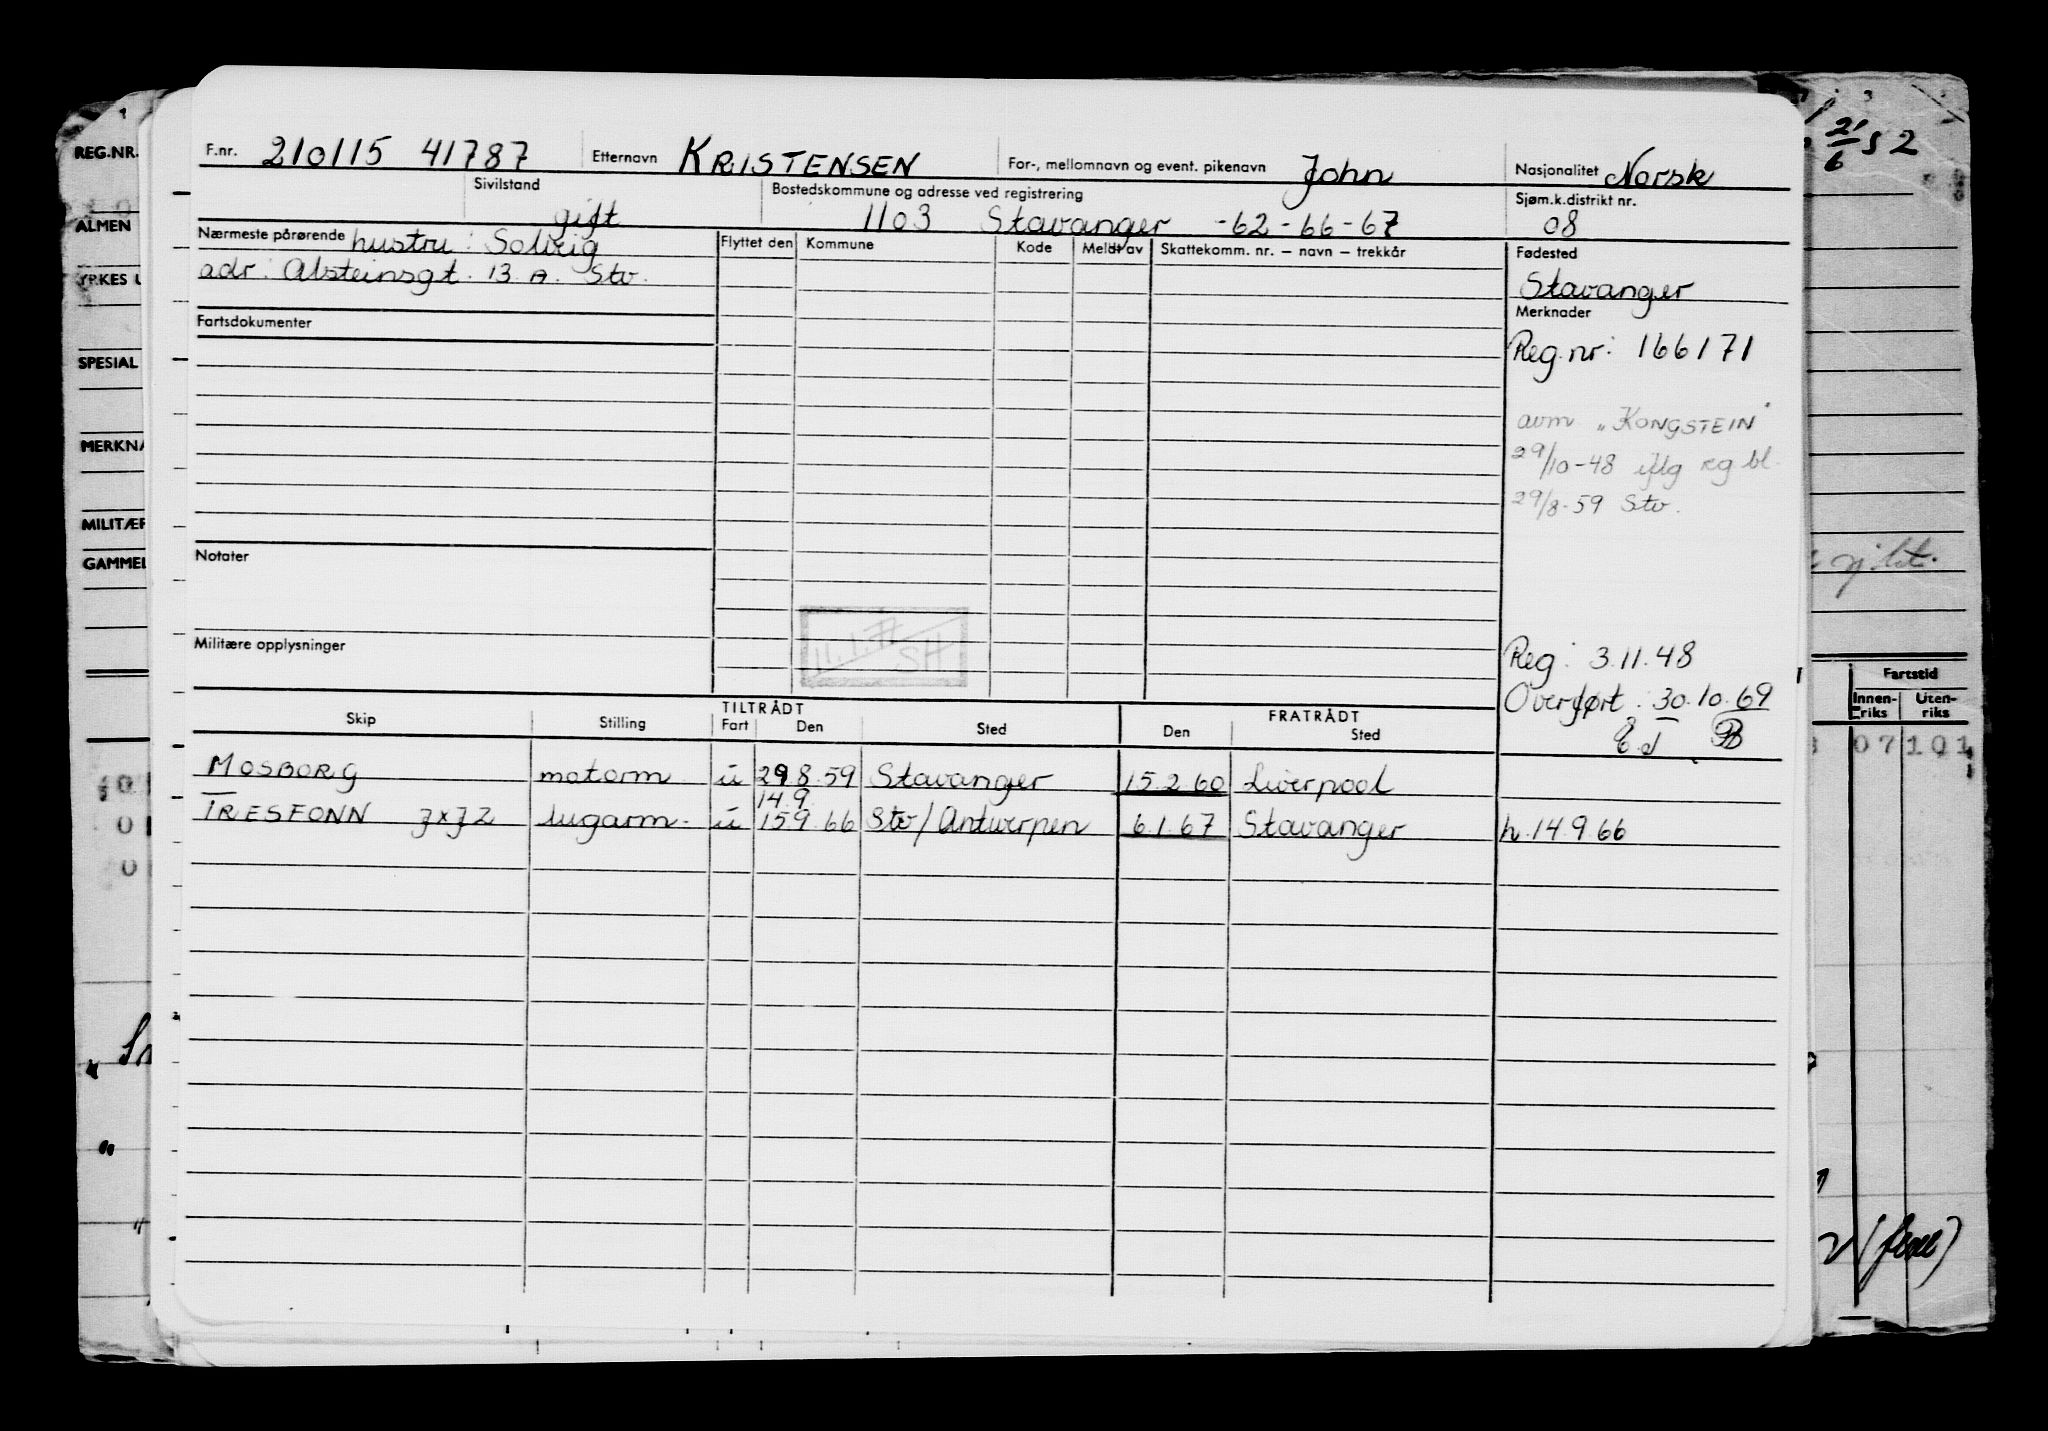 F.nr. 210115 41787 Etternavn KRISTENSEN For-, mellomnavn og event. pikenavn John Nasjonalitet Norsk
Sivilstand gift Bostedskommune og adresse ved registrering 1103 Stavanger -62-66-67 Sjøm.k.distrikt nr. 08
Nærmeste pårørende hustru: Solveig
adr: Alsteinsgt. 13 A. Stv.
Flyttet den Kommune Kode Meldt av Skattekomm. nr. – navn – trekkår
Fødested
Stavanger
Fartsdokumenter
Merknader
Reg.nr: 166171
avm. "KONGSTEIN"
29/10-48 iflg reg bl.
29/8-59 Stv.
Notater
Militære opplysninger
11.1.77
SH
Reg: 3.11.48
Overført: 30.10.69
Skip Stilling TILTRÅDT Fart Den Sted FRATRÅDT Den Sted
MOSBORG motorm u 29.8.59 Stavanger 15.2.60 Liverpool
14.9.
TRESFONN JXJZ lugarm. u 15.9.66 Stv/Antwerpen 6.1.67 Stavanger h.14.9.66
REG.NR.
ALMEN
YRKES
SPESIAL
MERKNA
MILITÆR
GAMMEL
21/6 52
Fartstid
Innen-riks Uten-riks
07 101